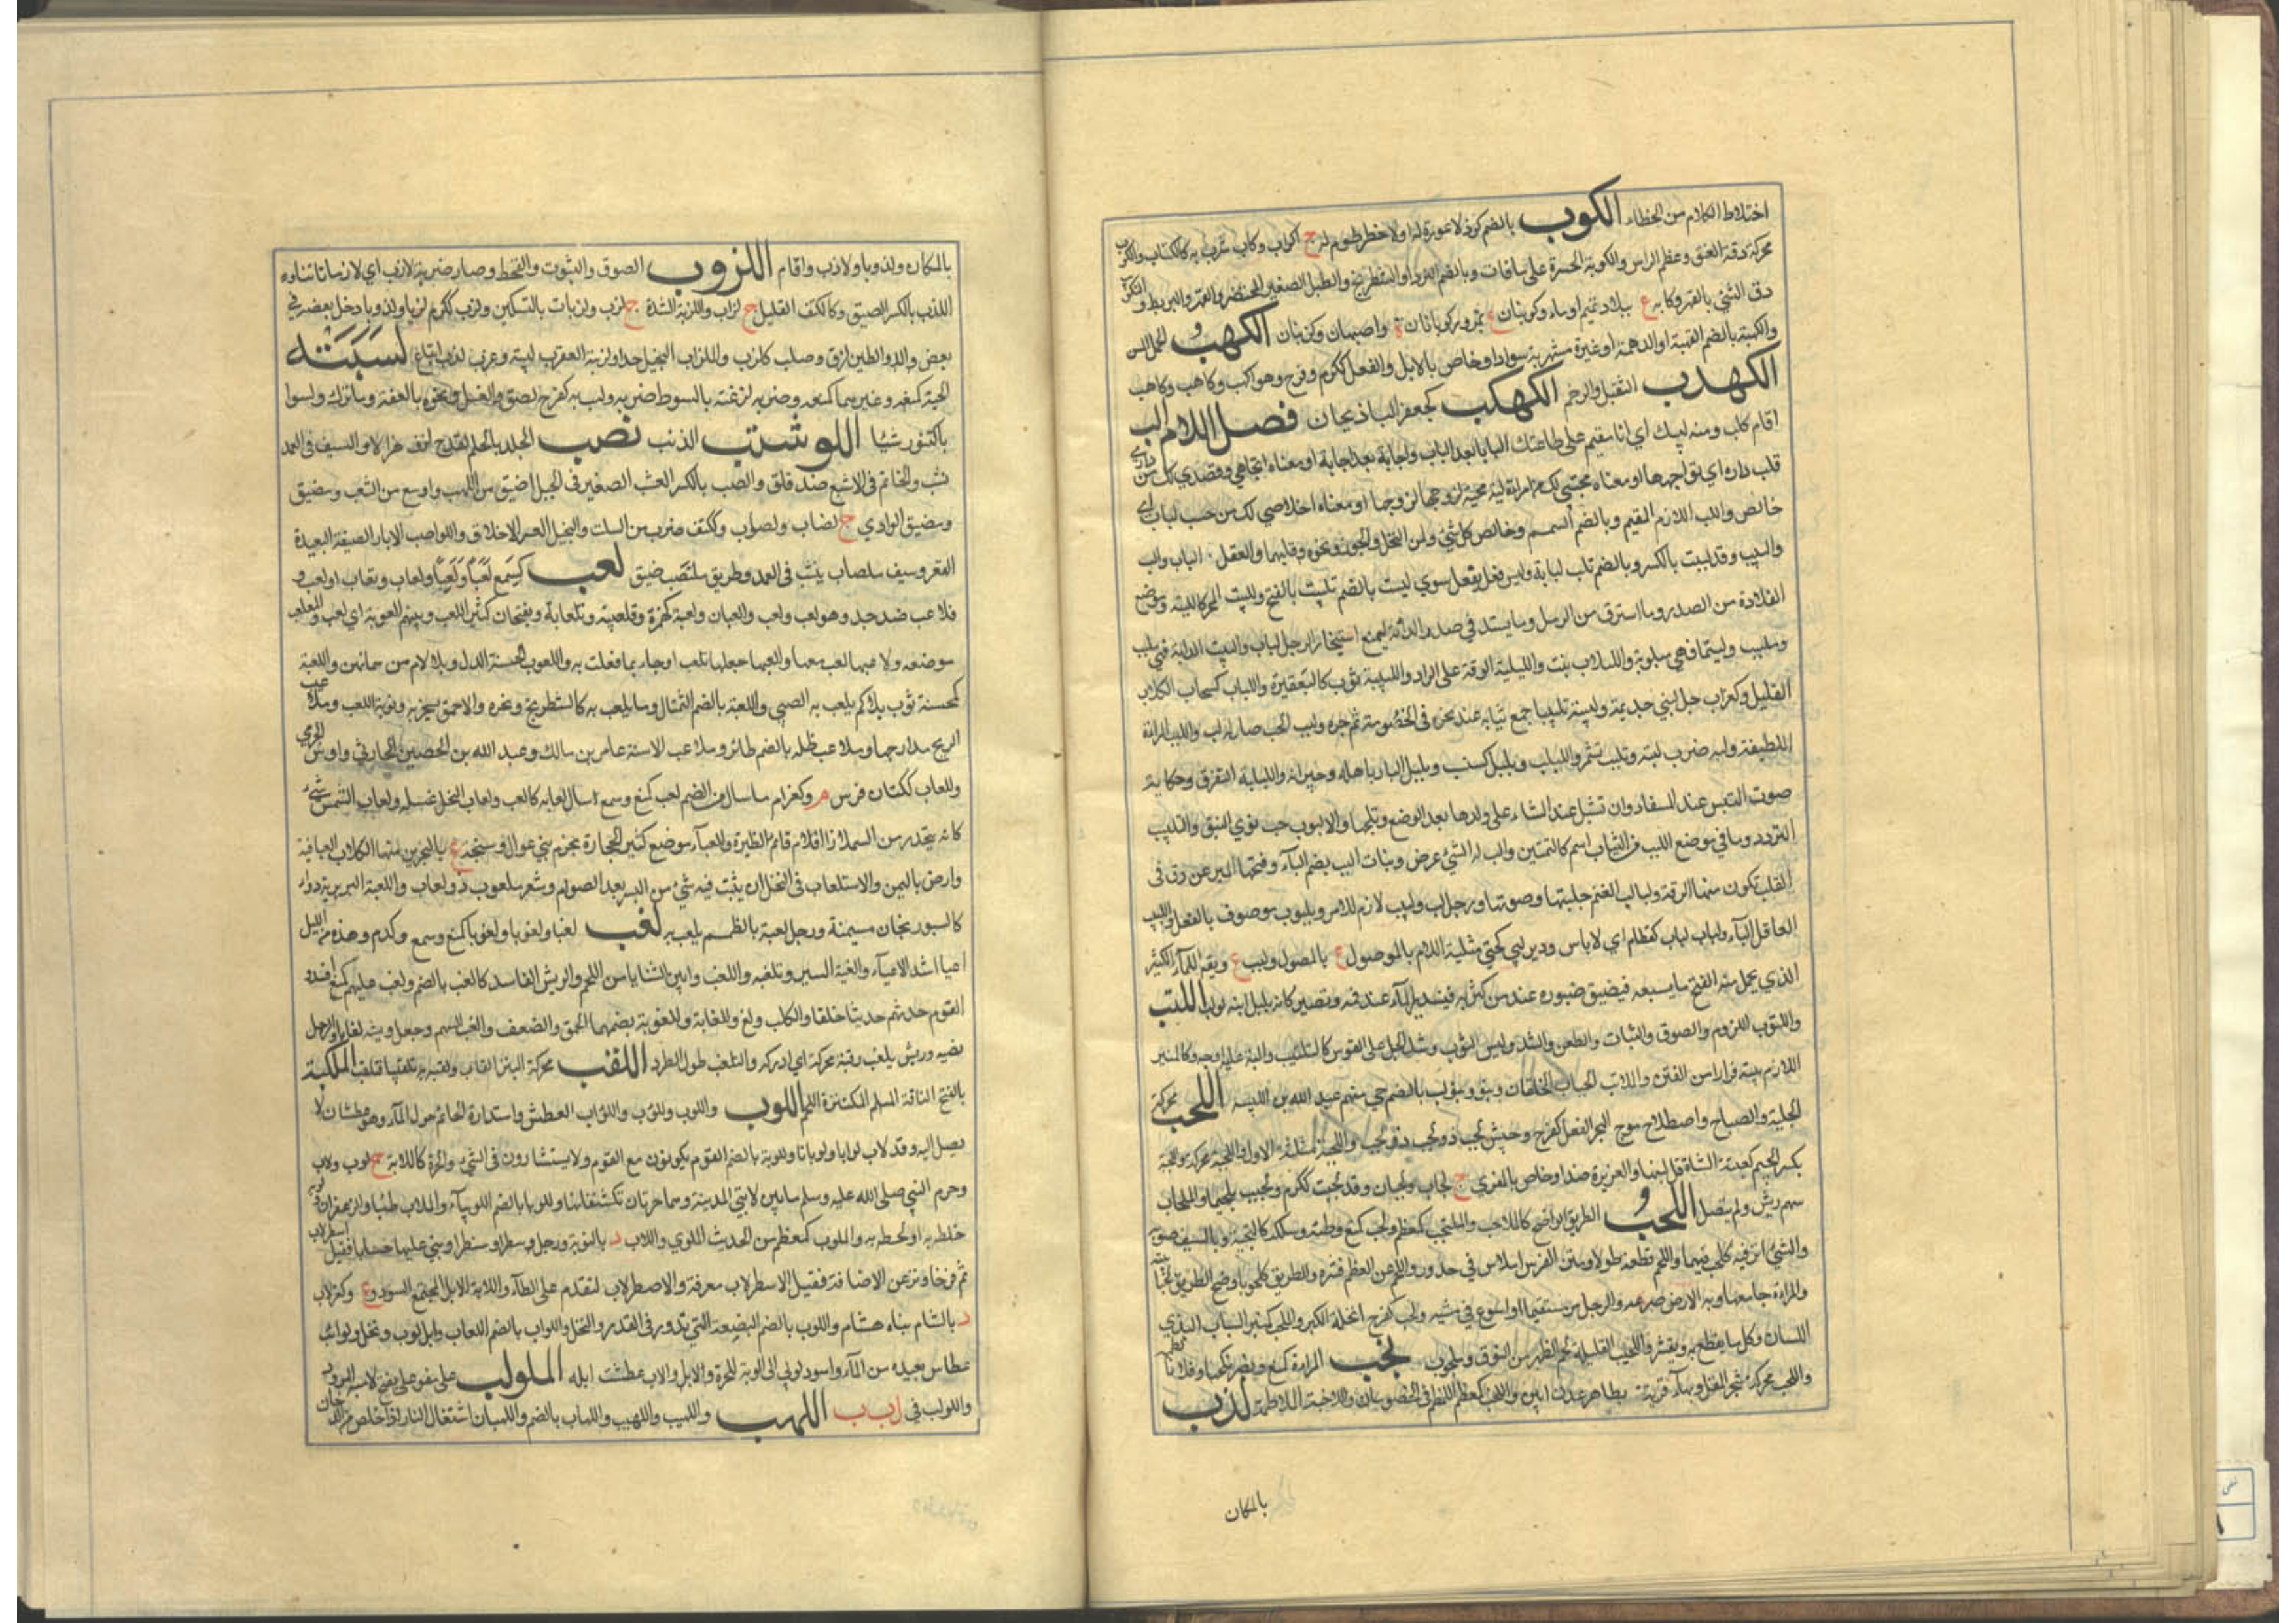 اختلاط الكلام من الخطاء الكوب بالضم كوز لا عروة له او لا خرطوم له ج اكواب وكاب شرب به كالكتاب والكوب
محركة دقة العنق وعظم الراس والكوبة الحسرة على ما فات وبالضم النرد او الشطرنج والطبل الصغير المخصر والفهر والبربط والتكويب
دق الشئ بالفهر وكابه ع ببلاد تميم او ماء وكوبنان ع بمرو وكوبانان ة واصبهان وكوبنان الكهب والجاموس المسن
والكهبة بالضم القهبة او الدهمة او غبرة مشربة سوادا او خاص بالابل والفعل ككرم وفرح وهو اكهب وكاهب وكاهب
الكهدب الثقيل الوخم الكهكب كجعفر الباذنجان فصل اللام الب
اقام كلب ومنه لبيك اي انا مقيم على طاعتك البابا بعد الباب واجابة بعد اجابة او معناه اتجاهي وقصدي لك من داري
تلب داره اي تواجهها او معناه محبتي لك من امراة لبة محبة لزوجها او معناه اخلاصي لك من حسب لباب اي
خالص واللب اللازم المقيم وبالضم السم وخالص كل شئ ومن النخل والجوز ونحوه وقلبها والعقل الباب والب
والبب وقد لببت بالكسر وبالضم تلب لبابة وليس فعل يفعل سوي لببت بالضم تلبب بالفتح واللبب المنحر كاللبة وموضع
القلادة من الصدر وما استرق من الرمل وما يشد في صدر الدابة ليمنع استيخار الرجل الباب والببت الدابة فهي ملبب
وملبب ولببتها فهي ملبوبة واللبلاب نبت واللبلبة الرقة على الولد واللبيبة ثوب كالبقيرة واللباب كسحاب الكلاء
القليل وكغراب جبل لبني جذيمة ولببه تلبيبا جمع ثيابه عند نحره في الخصومة ثم جره ولبب الحب صار له لب واللبة المراة
اللطيفة ولبه ضرب لبته وتلبب تشمر واللبلب ولبلب كسبسب وبلبل البار باهله وجيرانه واللبلبة التفرق وحكاية
صوت التيس عند السفاد وان تشبل عند الشاء على ولدها بعد الوضع وتلحسها والالبوب حب نوي النبق والتلبيب
التردد وما في موضع اللبب من الثياب اسم كالتمتين والب له الشئ عرض وبنات البب بضم الباء وفتحها المبرد عروق في
القلب تكون منها الرقة ولبالب الغنم جلبتها وصوتها ورجل لب ولبيب لازم للامر وملبوب موصوف بالعقل واللبيب
العاقل البآء ولباب لباب كقطام اي لا باس ودير لبي كحتي مثلثة اللام بالموصل ع بالموصل ولبب ع وبقه الماء الكثير
الذي يحمل منه الفتح ما يسعه فيضيق صنبوره عنه من كثرته فيستدير الماء عند فمه ويصير كانه بلبل انبه لوب اللتب
واللتوب اللزوم واللصوق والثبات والطعن والشد ولبس الثوب وشد الجل على الفرس كالتلتيب والبته عليه اوجبه وكالمنبر
اللازم بيته فرارا من الفتن والملاتب الجباب الخلقان وبنو لتب بالضم حي منهم عبد الله بن اللتبية اللجب محركة
الجلبة والصياح واصطلاح موج البحر الفعل كفرح وجيش لجب ذو لجب واللجبة مثلثة الاول واللجبة محركة واللجبة
بكسر الجيم كعنبة الشاة قل لبنها والغزيرة ضد او خاص بالمعزي ج لجاب ولجبات وقد لجبت ككرم ولجبت تلجيبا والملجاب
سهم ريش ولم ينصل اللحب الطريق الواضح كاللاحب والملحب كمعظم ولحب كمنع وطئه وسلكه كالتحبه وبالسيف ضربه
والشئ اثر فيه كلحب فيهما واللحم قطعه طولا ومتن الفرس املاس في حدور واللحم عن العظم قشره والطريق لحوبا وضح والطريق لحبا بينه
والمراة جامعها وبه الارض صرعه والرجل مر مستقيما او اسرع في مشيه ولحب كفرح انحله الكبر والملحب كمنبر السباب البذي
اللسان وكل ما يقطع به ويقشر واللحيب القليلة لحم الظهر من النوق وملحوب لخب المراة كمنع ونصر نكحها وفلانا لطمه
واللخب محركة شجر المقل وبهاء قرية بظاهر عدن ابين والملخب كمعظم الملطم في الخصومات والملاخبة الملاطمة لذب
بالمكان
بالمكان ولذوبا ولاذب واقام اللزوب اللصوق والثبوت والقحط وصار ضربة لازب اي لازما ثابتا وه
اللزب بالكسر الضيق وككتف القليل ج لزاب واللزبة الشدة ج لزب ولزبات بالتسكين ولزب ككرم لزبا ولزوبا دخل بعضه في
بعض والطين لزق وصلب كلزب والملزاب البخيل جدا ولزبته العقرب لسبته وعزب لزب اتباع لسبته
الحية كمنعه وغيرهما كمنعه وضربه لزغته بالسوط ضربه ولسب به كفرح لصق والعسل ونحوه بالعقه وما ترك ولسوبا
باكتنور شيئا اللوشب الذئب لصب الجلد باللحم كفرح لزق هزالا والسيف في الغمد
نشب والخاتم في الاصبع ضد قلق واللصب بالكسر الشعب الصغير في الجبل اضيق من اللهب واوسع من الشعب ومضيق
ومضيق الوادي ج لصاب ولصوب وككتف ضرب من السلت والبخيل العسر الاخلاق واللواصب الابار الضيقة البعيدة
القعر وسيف ملصاب ينشب في الغمد وطريق ملتصب ضيق لعب كسمع لعبا ولعبا ولعبا وتلعابا وتلعاب ولعب و
تلاعب ضد جد وهو لعب ولعب والعبان ولعبة كهمزة وتلعيبة وتلعابة وبفتحان كثير اللعب وبينهم العوبة اي لعب والملعب
موضعه ولاعبها لعب معها والعبها جعلها تلعب او جاء بما تلعب به واللعوب الحسنة الدل وبلا لام من اسمائهن والملعبة
كمحسنة ثوب بلا كم يلعب به الصبي واللعبة بالضم التمثال وما يلعب به كالشطرنج ونحوه والاحمق يسخر به ونوبة اللعب وملاعب
الريح مدارجها وملاعب ظله بالضم طائر وملاعب الاسنة عامر بن مالك وعبد الله بن الحصين الحارثي واوس الجرمي
واللعاب ككتان فرس م وكغراب ما سال من الفم لعب كمنع وسمع سال لعابه كالعب ولعاب النحل عسله ولعاب الشمس شئ
كانه ينحدر من السماء اذا قام قائم الظهيرة واللعباء موضع كثير الحجارة بحزم بني عوال وسبخة ع بالبحرين منها الكلاب اللعبانية
وارض باليمن والاستلعاب في النخل ان ينبت فيه شئ من البسر بعد الصرام وثغر ملعوب ذو لعاب واللعبة البربرية دواء
كالسورنجان مسمنة ورجل لعبة بالضم يلعب به لغب لغبا ولغوبا ولغوبا كمنع وسمع وكرم وهذه من الليل
اعيا اشد الاعياء والغبه السير وتلغبه واللغب ما بين الثنايا من اللحم والريش الفاسد كاللغب بالضم ولغب عليهم كمنع افسد و
القوم حدثهم حديثا خلقا والكلب ولغ واللغابة واللغوبة بضمهما الحمق والضعف والغب السهم وجعل ريشه لغابا والرجل
نضيه وريش بلغب رقبه محركة اي ادركه والتلغب طول الطرد اللقب محركة النبز القاب ولقبه به تلقيبا فتلقب الملكبة
بالفتح الناقة المسلم المكتنزة اللحم اللوب واللوب واللؤب واللواب العطش واستدارة الحائم حول الماء وهو عطشان لا
يصل اليه وقد لاب لوبا ولوبانا واللوبة بالضم القوم يكونون مع القوم ولا يستشارون في الشئ والحرة كاللابة ج لوب ولاب
وحرم النبي صلى الله عليه وسلم ما بين لابتي المدينة وهما حرتان تكتنفانها واللوبا بالضم اللوبياء والملاب طيب او الزعفران ولوبه
خلطه به او لطخه به والملوب كمعظم من الحديث الملوي واللاب د بالنوبة ورجل وسطر اسطرا وبني عليها حسابا فقيل اسطرلاب
ثم مزجا ونزعت الاضافة فقيل الاسطرلاب معرفة والاصطرلاب لتقدم على الطاء واللابة الابل المجتمع السود وع وكغراب
د بالشام بناه هشام واللوب بالضم البضعة التي تدور في القدر والنحل واللواب بالضم اللعاب وابل لوب ونخل ولوائب
عطاش بعيده من الماء واسود لوبي الى اللوبة للحرة والاب عطشت ابله الملولب على مفوعل بفتح لامه المرود
واللولب في ل ب ب اللهب واللهيب واللهاب بالضم واللهبان اشتعال النار اذا خلص من الدخان